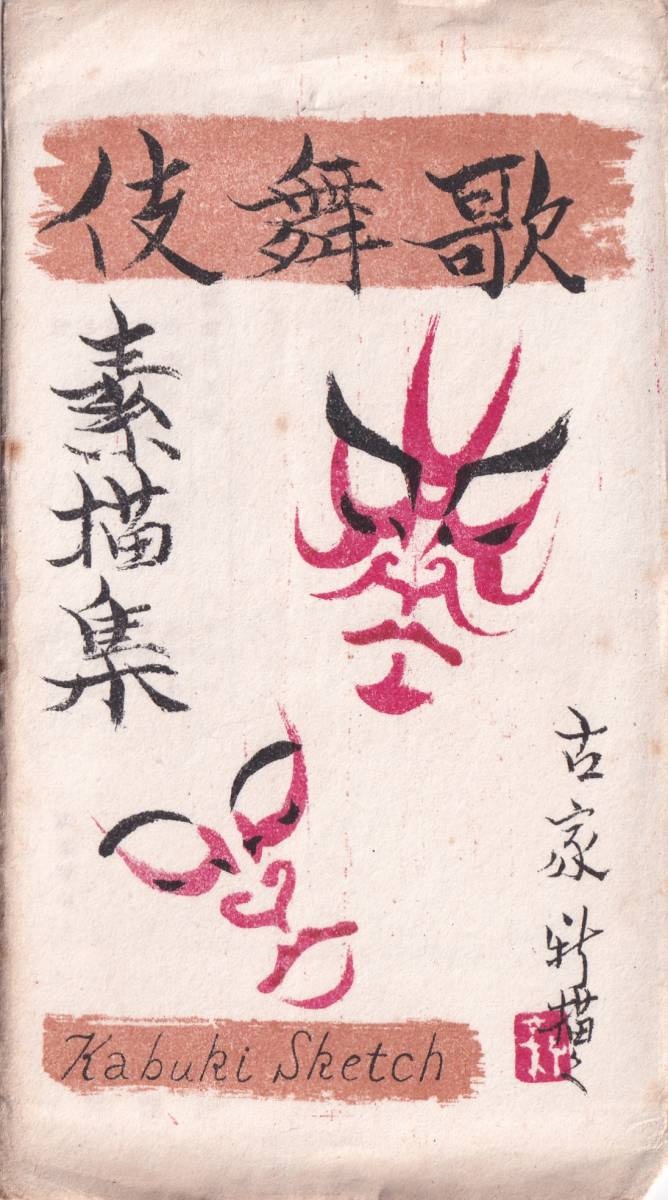 歌舞伎
素描集
古家新描
Kabuki Sketch